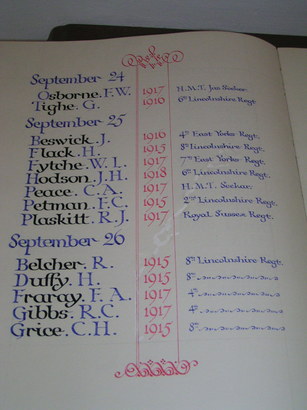 September 24
Osborne. F.W. 1917 H.M.T.
Tighe. G. 1916 6th Lincolnshire Regt.
September 25
Beswick. J. 1916 4th East Yorks Regt.
Flack. H. 1915 8th Lincolnshire Regt.
Fytche. W. I. 1917 7th East Yorks Regt.
Hodson. J.H. 1918 6th Lincolnshire Regt.
Peace. C. A. 1917 H.M.T.
Petman. F.C. 1915 2nd Lincolnshire Regt.
Plaskitt. R. J. 1917 Royal Sussex Regt.
September 26
Belcher. R. 1915 8th Lincolnshire Regt.
Duffy. H. 1915 8th
Fraray. F. A. 1917 4th
Gibbs. R.C. 1917 4th
Grice. C.H. 1915 8th